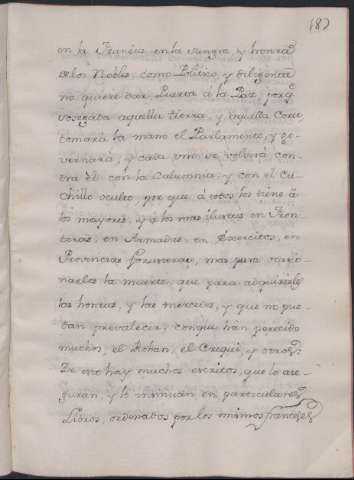 182
en la Francia, en la sangre, y honra
de los Nobles: como Politico, y diligente
no quiere dar Puerta à la Paz, porq̃
sosegada aquella tierra, y aquella Corte
tomará la mano el Parlamento, y go-
vernará, y cada uno se volverá con-
tra èl con la Calumnia, y con el Cu-
chillo oculto por que à todos los tiene à
los mayores, y à los mas ilustres en Fron-
teras, en Armadas, en Exercitos, en
Provincias forasteras, mas para ocasio-
narles la muerte, que para adquirirles
las honras, y las mercedes, y que no pue-
dan prevalecer, conque han perecido
muchos, el Rohan, el Crequi, y otros.
De esto hay muchos escritos, que lo ase-
guran, y lo insinuan en particulares
Libros, ordenados por los mismos franceses